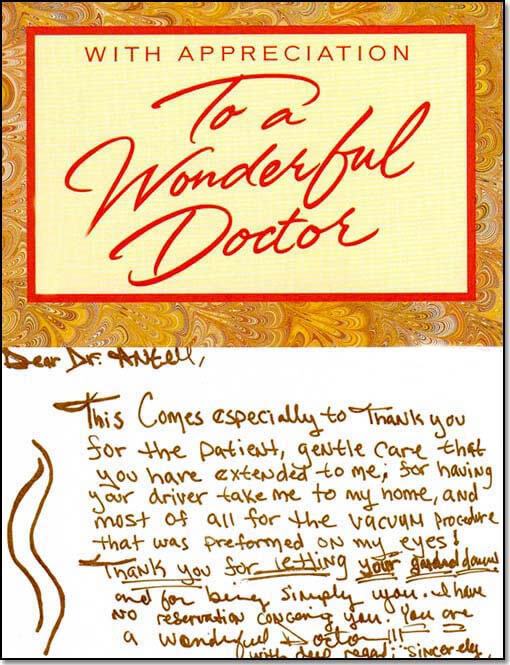 WITH APPRECIATION
To a
Wonderful
Doctor
Dear Dr. Antell,
This Comes especially to Thank you
for the patient, gentle care that
you have extended to me; for having
your driver take me to my home, and
most of all for the vacuum procedure
that was preformed on my eyes!
Thank you for letting your guard down
and for being simply you. I have
no reservation concering you. You are
a wonderful Doctor!!!
with deep regard; Sincerely,